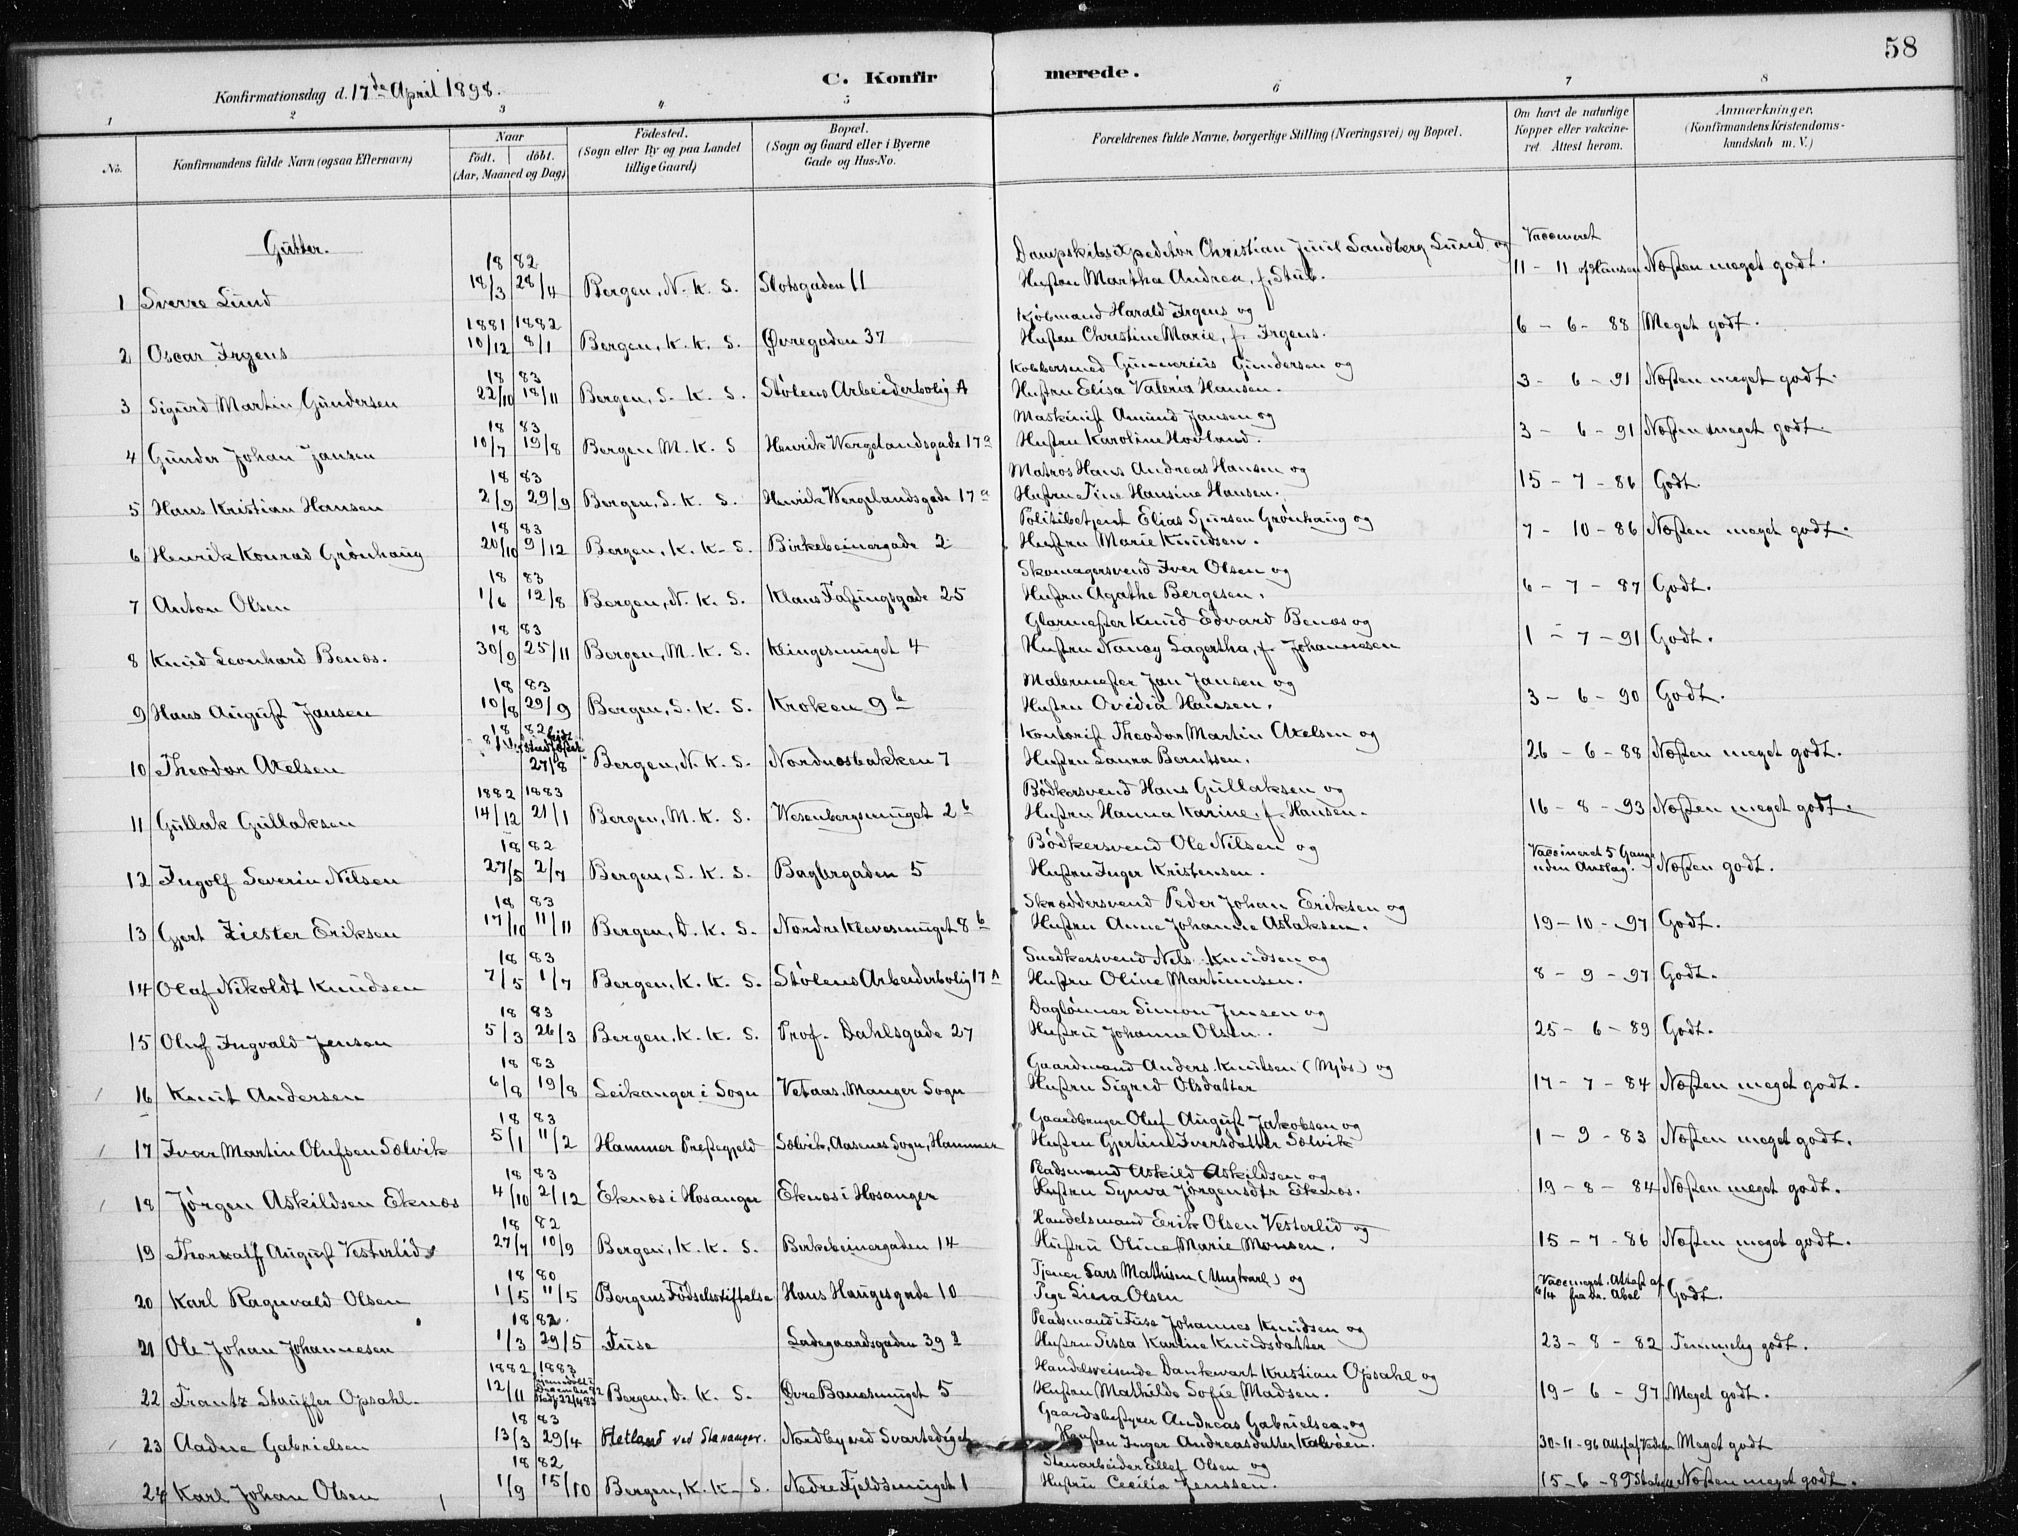 58
C. Konfirmerede.
Konfirmationsdag d. 17de April 1898.
1 2 3 4 5 6 7 8
No.
Konfirmandens fulde Navn (ogsaa Efternavn)
Naar
födt. döbt.
(Aar, Maaned og Dag)
Födested.
(Sogn eller By og paa Landet
tillige Gaard)
Bopæl.
(Sogn og Gaard eller i Byerne
Gade og Hus-No.
Forældrenes fulde Navne, borgerlige Stilling (Næringsvei) og Bopæl.
Om havt de naturlige
Kopper eller vakcine-
ret. Attest herom.
Anmærkninger,
(Konfirmandens Kristendoms-
kundskab m. V.)
Gutter.
Dampskibsexpeditör Christian Juul Sandberg Lund og Vaccineret
18 82
1 Sverre Lund 18/3 28/4 Bergen, N. K. S. Slotsgaden 11 Hustru Martha Andrea, f. Stub. 11 - 11 af Hansen Næsten meget godt.
1881 1882 Kjøbmand Harald Irgens og
2 Oscar Irgens 10/12 8/1 Bergen, K. K. S. Øvregaden 37 Hustru Christine Marie, f. Irgens. 6 - 6 - 88 Meget godt.
18 83 Kobbersmed Gunnerius Gundersen og
3 Sigurd Martin Gundersen 22/10 18/11 Bergen, S. K. S. Stølens Arbeiderbolig A Hustru Elisa Valeria Hansen. 3 - 6 - 91 Næsten meget godt.
18 83 Maskinist Amund Jansen og
4 Gunder Johan Jansen 10/7 19/8 Bergen M. K. S Henrik Wergelandsgade 17a Hustru Karoline Hovland. 3 - 6 - 91 Næsten meget godt.
18 83 Matros Hans Andreas Hansen og
5 Hans Kristian Hansen 2/9 29/9 Bergen, S. K. S. Henrik Wergelandsgade 17a Hustru Tine Hansine Hansen. 15 - 7 - 86 Godt.
18 83 Politibetjent Elias Sjursen Grønhaug og
6 Henrik Konrad Grønhaug 20/10 9/12 Bergen, K. K. S. Birkebeinergade 2 Hustru Marie Knudsen. 7 - 10 - 86 Næsten meget godt.
18 83 Skomagersvend Iver Olsen og
7 Anton Olsen 1/6 12/8 Bergen, N. K. S. Klaus Fastingsgade 25 Hustru Agathe Bergesen. 6 - 7 - 87 Godt.
18 83 Glarmester Knud Edvard Benæs og
8 Knud Leonhard Benæs. 30/9 25/11 Bergen, M. K. S. Klingesmuget 4 Hustru Nancy Lagertha, f. Johannesen 1 - 7 - 91 Godt.
18 83 Malermester Jan Jansen og
9 Hans August Jansen 10/8 29/9 Bergen, S. K. S. Kroken 9b Hustru Ovidia Hansen. 3 - 6 - 90 Godt.
18 82 Kontorist Theodor Martin Axelsen og
10 Theodor Axelsen 27/8 Bergen, N. K. S. Nordnæsbakken 7 Hustru Laura Berntsen. 26 - 6 - 88 Næsten meget godt.
1882 1883 Bødkersvend Hans Gullaksen og
11 Gullak Gullaksen 14/12 21/1 Bergen, M. K. S. Wesenbergsmuget 2b Hustru Hanna Karine, f. Hansen. 16 - 8 - 93 Næsten meget godt.
18 82 Bødkersvend Ole Nilsen og Vaccineret 5 Gange
12 Ingolf Severin Nilsen 27/5 2/7 Bergen, S. K. S. Baglergaden 5 Hustru Inger Kristensen. uden Anslag. Næsten godt.
18 83 Skræddersvend Peder Johan Eriksen og
13 Gjert Ziester Eriksen 17/10 11/11 Bergen, D. K. S. Nordre Klevesmuget 8b Hustru Anne Johanne Aslaksen. 19 - 10 - 97 Godt.
18 83 Snedkersvend Nels Knudsen og
14 Olaf Nikoldt Knudsen 7/5 1/7 Bergen, K. K. S. Stølens Arbeiderbolig 17A Hustru Oline Martinusen. 8 - 9 - 97 Godt.
18 83 Daglønner Simon Jensen og
15 Oluf Ingvald Jensen 5/3 26/3 Bergen, K. K. S. Prof. Dahlsgade 27 Hustru Johanne Olsen. 25 - 6 - 89 Godt.
18 83 Gaardmand Anders Knutsen (Mjøs) og
16 Knut Andersen 6/8 19/8 Leikanger i Sogn Vetaas, Manger Sogn Hustru Sigrid Olsdatter 17 - 7 - 84 Næsten meget godt.
18 83 Gaardbruger Oluf August Jakobsen og
17 Ivar Martin Olufsen Solvik 5/1 11/2 Hammer Prestegjeld Solvik, Aasenes Sogn, Hammer Hustru Gjertine Iversdatter Solvik 1 - 9 - 83 Næsten meget godt.
18 83 Pladsmand Askild Askildsen og
18 Jørgen Askildsen Eknæs 4/10 2/12 Eknæs i Hosanger Eknæs i Hosanger Hustru Synva Jørgensdtr Eknæs. 19 - 8 - 84 Næsten meget godt.
18 82 Handelsmand Erik Olsen Vesterlid og
19 Thorvalf August Vesterlid 27/7 10/9 Bergen, K. K. S. Birkebeinergaden 14 Hustru Oline Marie Monsen. 15 - 7 - 86 Næsten meget godt.
18 80 Tjener Lars Mathisen (Ungkarl) og Vaccineret. Attest af
20 Karl Ragnvald Olsen 1/5 11/5 Bergens Fødselsstiftelse Hans Haugesgade 10 Pige Lina Olsen 6/4 fra Dr. Abel Godt.
18 82 Pladsmand i Fuse Johannes Knudsen og
21 Ole Johan Johannesen 1/3 29/5 Fuse Ladegaardsgaden 39a Hustru Sissa Karine Knudsdatter 23 - 8 - 82 Temmelig godt.
1882 1883 Handelsreisende Dankwart Kristian Opsahl og
22 Frantz Stauffer Opsahl. 12/11 Bergen, D. K. S. Øvre Banesmuget 5 Hustru Mathilde Sofie Madsen. 19 - 6 - 97 Meget godt.
18 83 Gaardsbestyrer Andreas Gabrielsen og
23 Aadne Gabrielsen 13/3 29/4 Hetland ved Stavanger. Nordby ved Svartediget Hustru Inger Andreasdatter Kalvøen. 30-11-96 Meget godt
18 82 Stenarbeider Ellef Olsen og
24 Karl Johan Olsen 1/9 15/10 Bergen, K. K. S. Nedre Fjeldsmuget 1 Hustru Cecilia Jenssen. 15 - 6 - 89 Næsten meget godt.